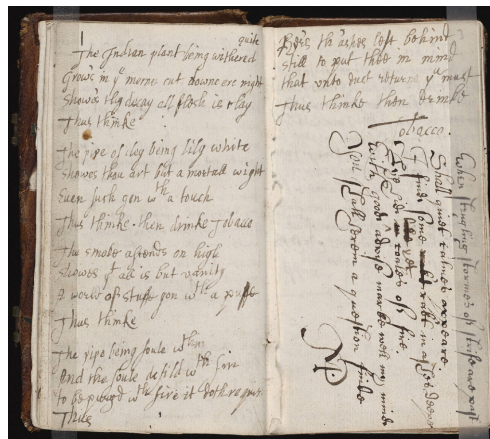 quite
The Indian plant being withered
Grows in yͤ morne cut downe ere night
Showes thy decay all flesh is clay
Thus thinke
The pipe of cley being lily white
Showes thou art but a mortall wight
Even such gon wᵗʰ a touch
Thus thinke then drinke Tobacco
The smoke assends on high
Showes yͭ all is but vanity
A world of stuffe gon wᵗʰ a puffe
Thus thinke
The pipe being foule wᵗʰin
And the soule defild wᵗʰ sin
to be purgd wᵗʰ fire it doth requir
Thus
th' ashes left behind
still to put thee in mind
that unto dust returne yͧ must
Thus thinke then drinke
Tobacco
When stingling stormes of strife are past
Shall quiet calmes appeare
I finde some in ashes
of fire
with good advise may be well my minde
You shall from a question finde